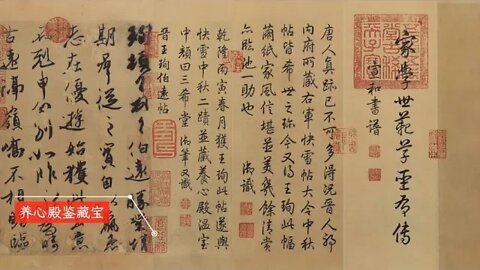 家學世範草聖有傳
宣和書譜
唐人真跡已不可多得況晉人耶
內府所藏右軍快雪帖大令中秋
帖皆希世之珎今又得王珣此幅
繭紙家風信堪並美幾餘清賞
亦臨池一助也
乾隆丙寅春月獲王珣此帖遂與
快雪中秋二蹟並藏養心殿溫室
中頟曰三希堂 御筆又識
晉王珣伯遠帖
珣頓首頓首伯遠勝業情
期群從之寶自以羸患
志在優遊始獲此出意
不剋申分別如昨永為疇
古遠隔嶺嶠不相瞻臨
养心殿鉴藏宝